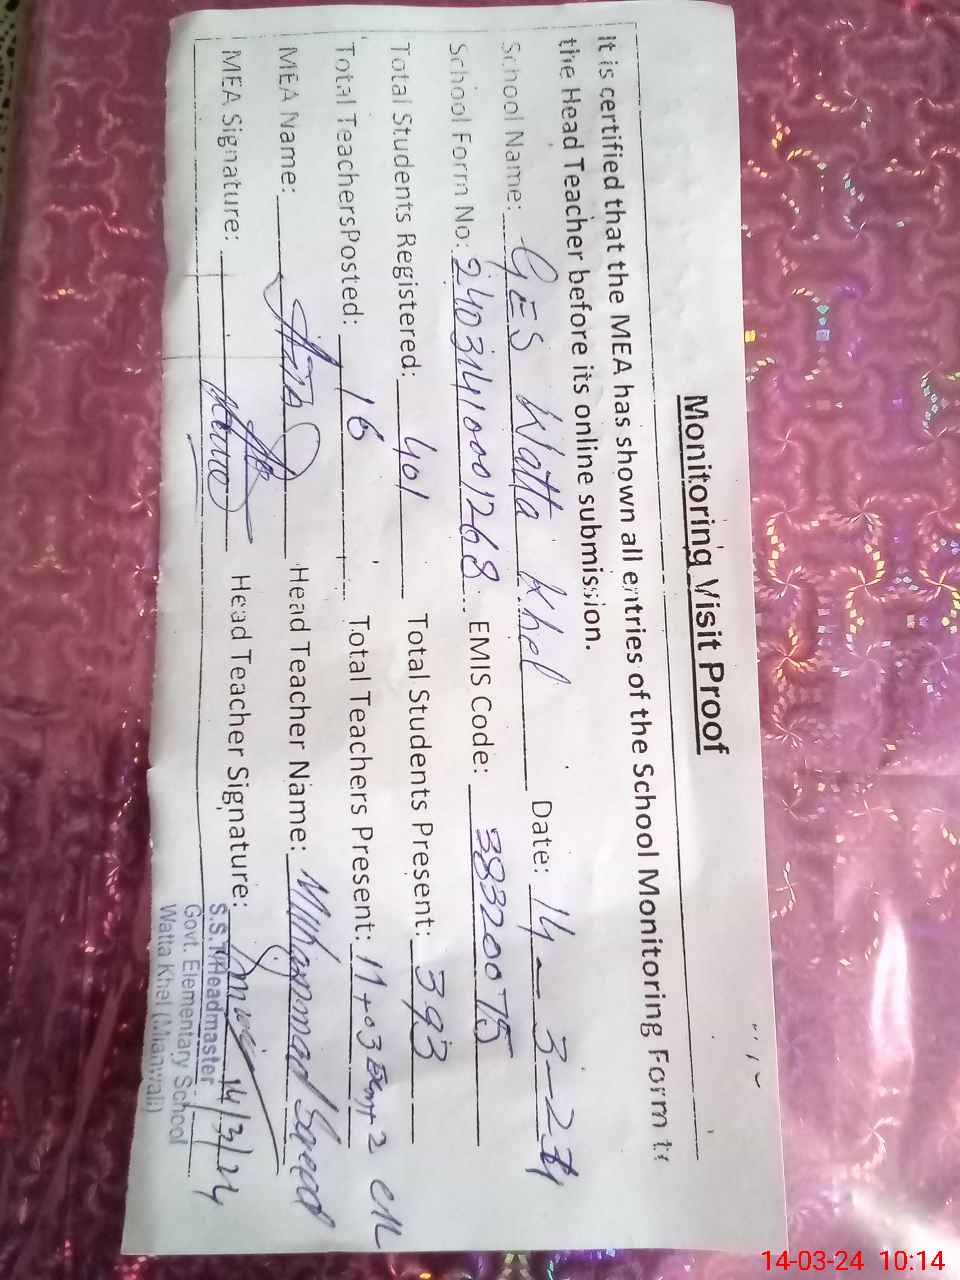 Monitoring Visit Proof
It is certified that the MEA has shown all entries of the School Monitoring Form to
the Head Teacher before its online submission.
School Name: GES Watta Khel Date: 14-3-24
School Form No: 24031410001268 EMIS Code: 38320075
Total Students Registered: 401 Total Students Present: 393
Total Teachers Posted: 16 Total Teachers Present: 11+03 Exm+2
MEA Name: Head Teacher Name: Muhammad Saeed
MEA Signature: Head Teacher Signature: 14/3/24
S.S.T/Headmaster
Govt. Elementary School
Watta Khel (Mianwali)
14-03-24 10:14